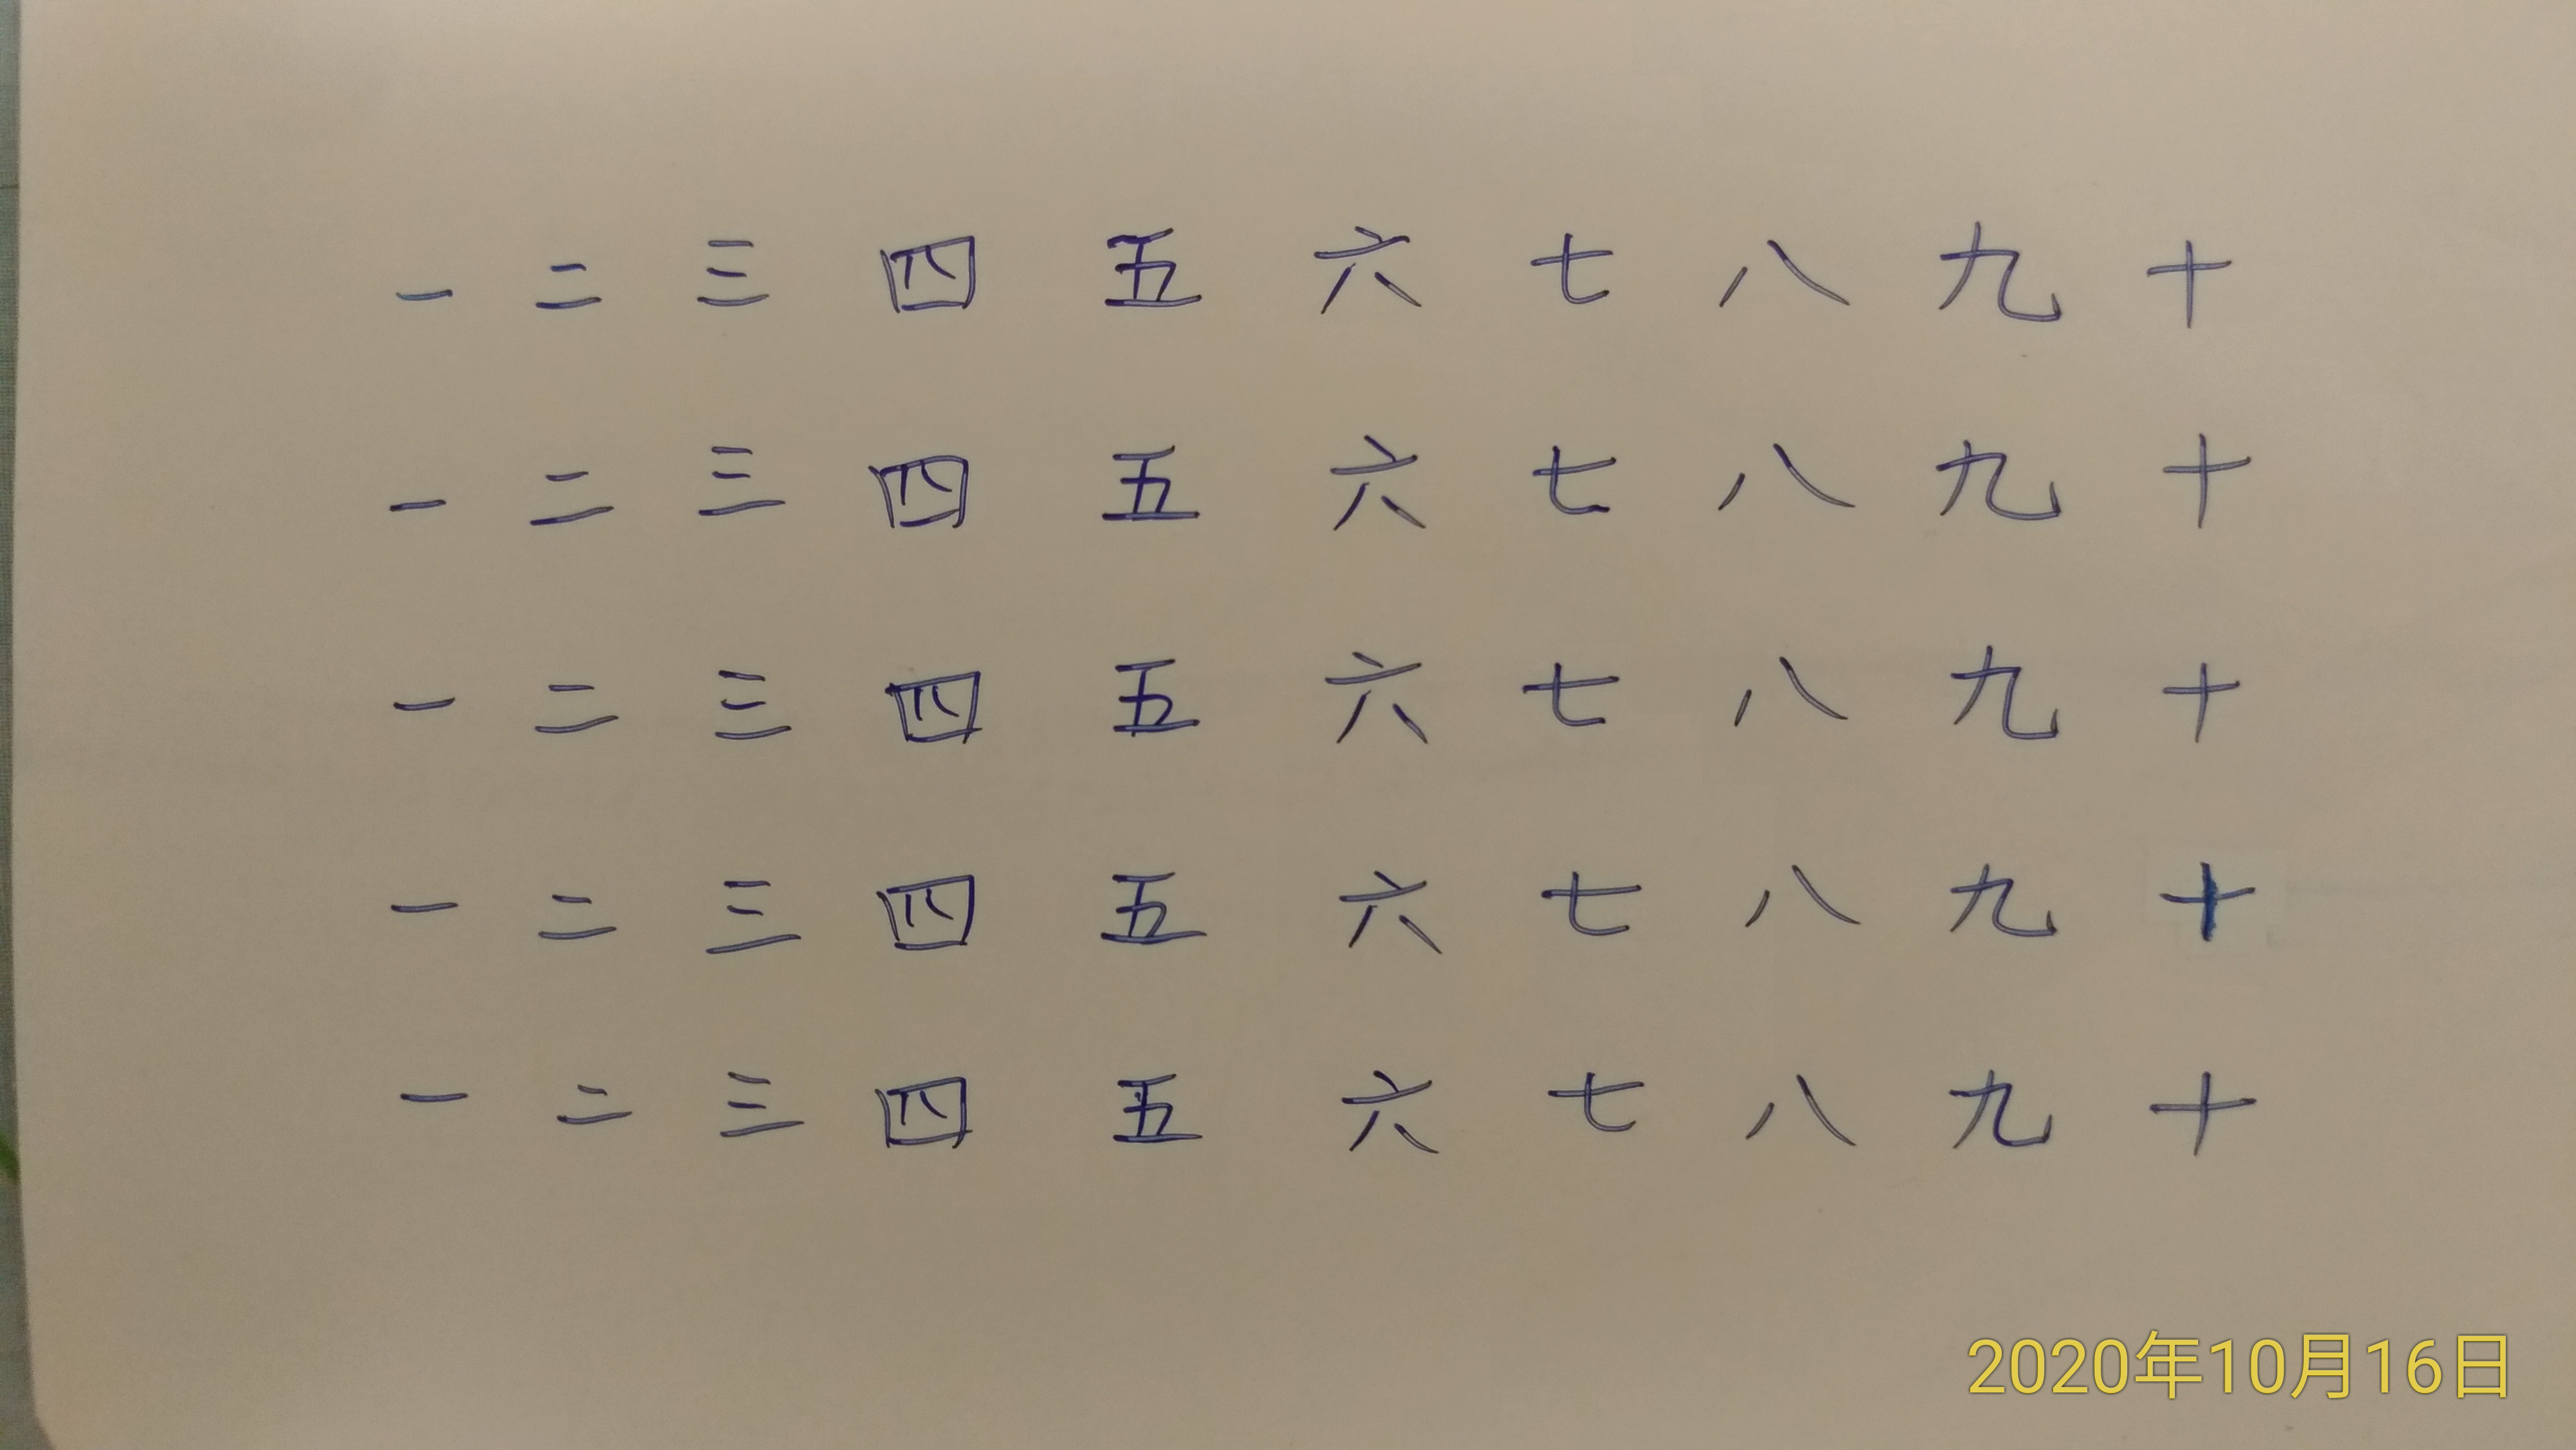 一 二 三 四 五 六 七 八 九 十
一 二 三 四 五 六 七 八 九 十
一 二 三 四 五 六 七 八 九 十
一 二 三 四 五 六 七 八 九 十
一 二 三 四 五 六 七 八 九 十
2020年10月16日